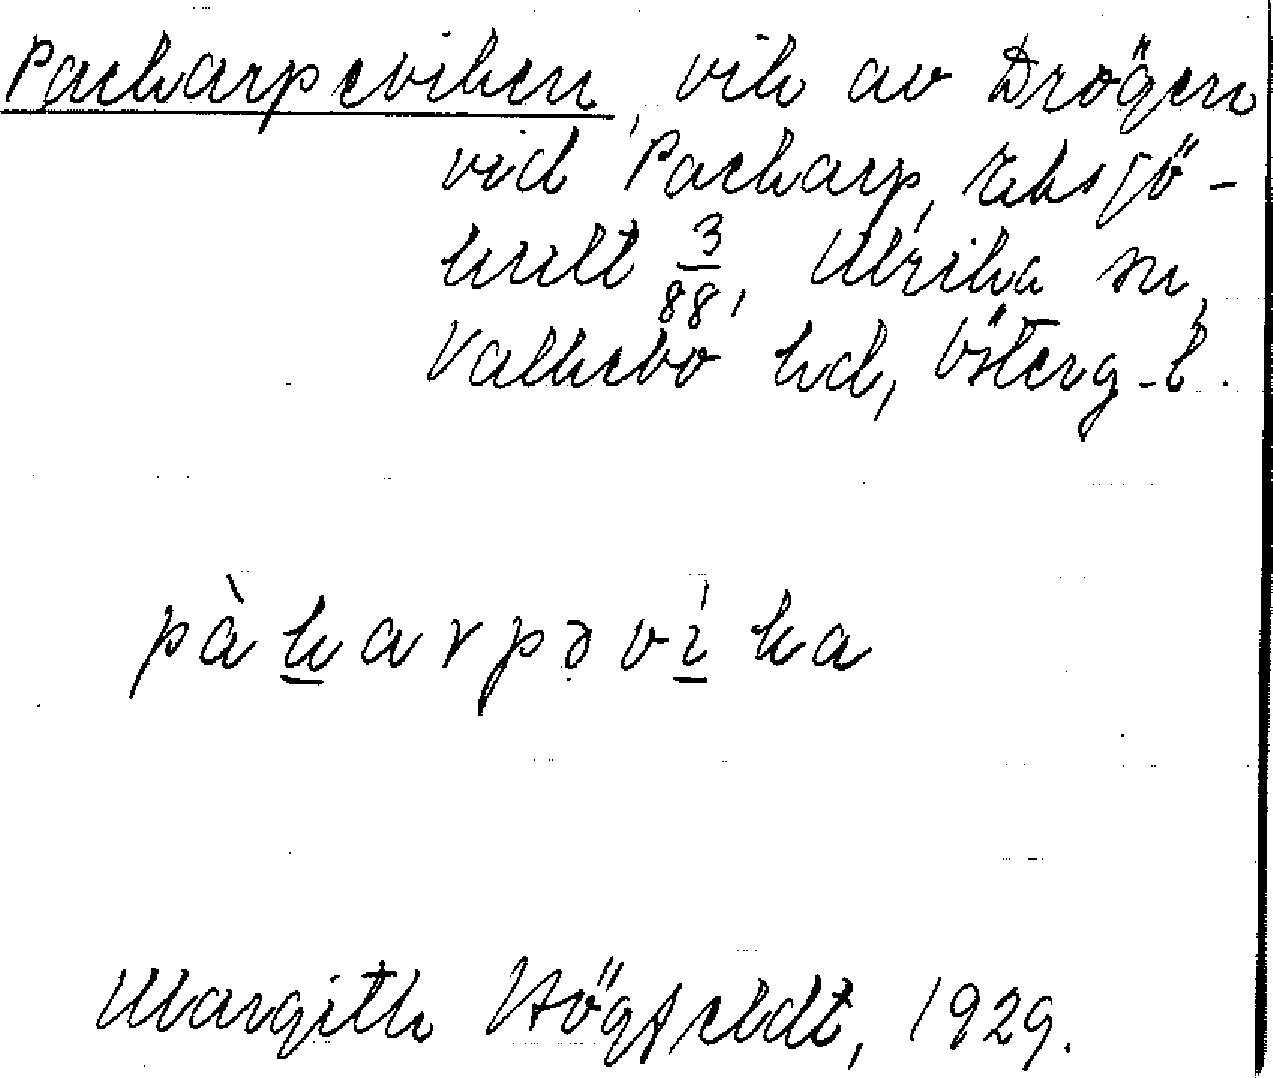 Packarpeviken, vik av Drögen
vid Packarp, Eksjö-
hult 3/88, Ulrika sn,
Valkebo hd, Österg-l.
pàkarpəvíka
Margith Högfeldt, 1929.